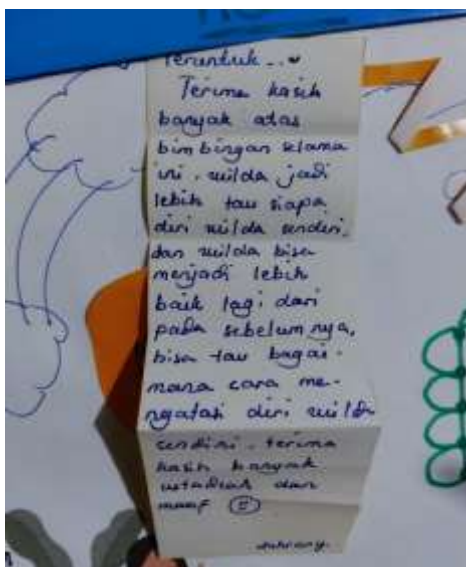 Teruntuk...
Terima kasih
banyak atas
bimbingan selama
ini. wilda jadi
lebih tau siapa
diri wilda sendiri.
dan wilda bisa
menjadi lebih
baik lagi dari
pada sebelumnya,
bisa tau bagai-
mana cara me-
ngatasi diri wilda
sendiri. terima
kasih banyak
ustadzah dan
maaf